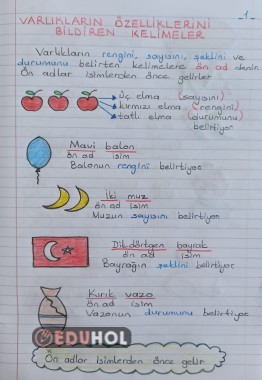 -1-
VARLIKLARIN ÖZELLİKLERİNİ
BİLDİREN KELİMELER
Varlıkların rengini, sayısını, şeklini ve
durumunu belirten kelimelere ön ad denir.
Ön adlar isimlerden önce gelirler
üç elma (sayısını)
kırmızı elma (rengini)
tatlı elma (durumunu)
belirtiyor
Mavi balon
ön ad isim
Balonun rengini belirtiyor
İki muz
ön ad isim
Muzun sayısını belirtiyor
Dikdörtgen bayrak
ön ad isim
Bayrağın şeklini belirtiyor
Kırık vazo
ön ad isim
Vazonun durumunu belirtiyor
EDUHOL
Ön adlar isimlerden önce gelir